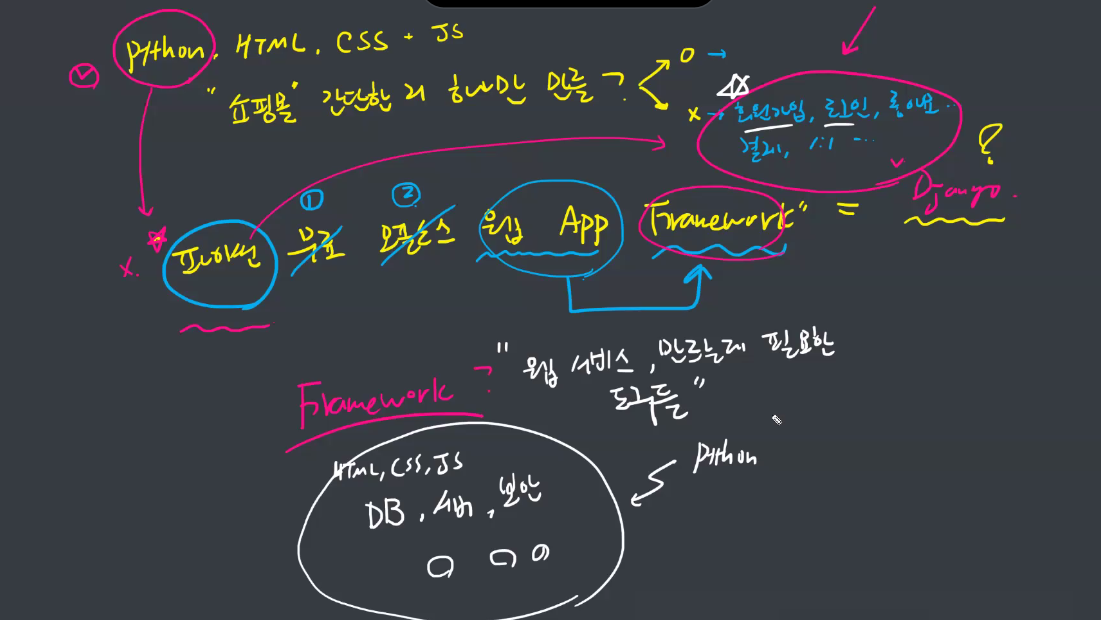 python, HTML, CSS + JS
"쇼핑몰" 간단한 거 하나만 만들 ?
O →
X → 회원가입, 로그인, 좋아요..
결제, 1:1 ...
?
① ②
파이썬 무료 오픈소스 웹 App Framework" = Django.
X.
Framework ? "웹 서비스, 만드는데 필요한
도구들"
HTML, CSS, JS
DB, 서버, 보안
python